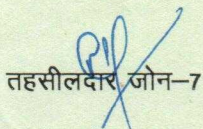 तहसीलदार जोन–7